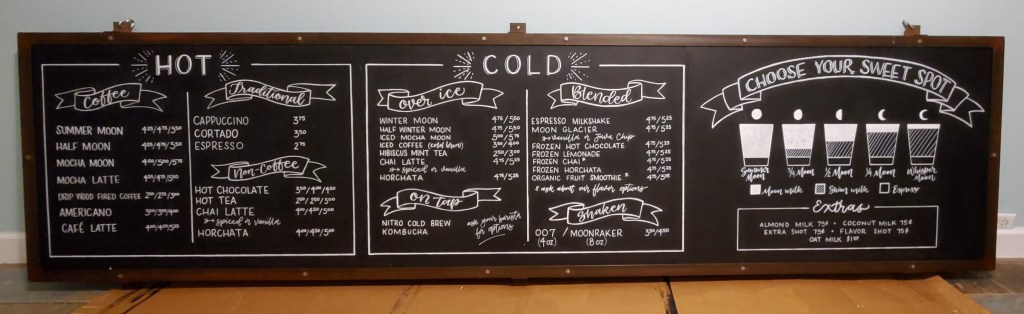 HOT
Coffee
SUMMER MOON
HALF MOON
MOCHA MOON
MOCHA LATTE
DRIP WOOD FIRED COFFEE
AMERICANO
CAFÉ LATTE
Traditional
CAPPUCCINO 3.75
CORTADO 3.50
ESPRESSO 2.75
Non-Coffee
HOT CHOCOLATE
HOT TEA
CHAI LATTE
spiced or vanilla
HORCHATA
COLD
over ice
WINTER MOON 4.75/5.50
HALF WINTER MOON
ICED MOCHA MOON
ICED COFFEE (cold brew)
HIBISCUS MINT TEA 2.50/3.00
CHAI LATTE 4.75/5.25
spiced or vanilla
HORCHATA 4.75/5.25
on tap
NITRO COLD BREW
KOMBUCHA
ask your barista
for options
Blended
ESPRESSO MILKSHAKE 4.75/5.25
MOON GLACIER 4.75/5.25
vanilla or Java Chip
FROZEN HOT CHOCOLATE 4.75/5.25
FROZEN LEMONADE
FROZEN CHAI
FROZEN HORCHATA 4.75/5.25
ORGANIC FRUIT SMOOTHIE
ask about our flavor options
Shaken
007 / MOONRAKER
(4oz) (8oz)
CHOOSE YOUR SWEET SPOT
Summer Moon
3/4 Moon
1/2 Moon
1/4 Moon
Whisper Moon
Moon milk
Espresso
Extras
ALMOND MILK 75¢ • COCONUT MILK 75¢
EXTRA SHOT 75¢ • FLAVOR SHOT 75¢
OAT MILK $1.00